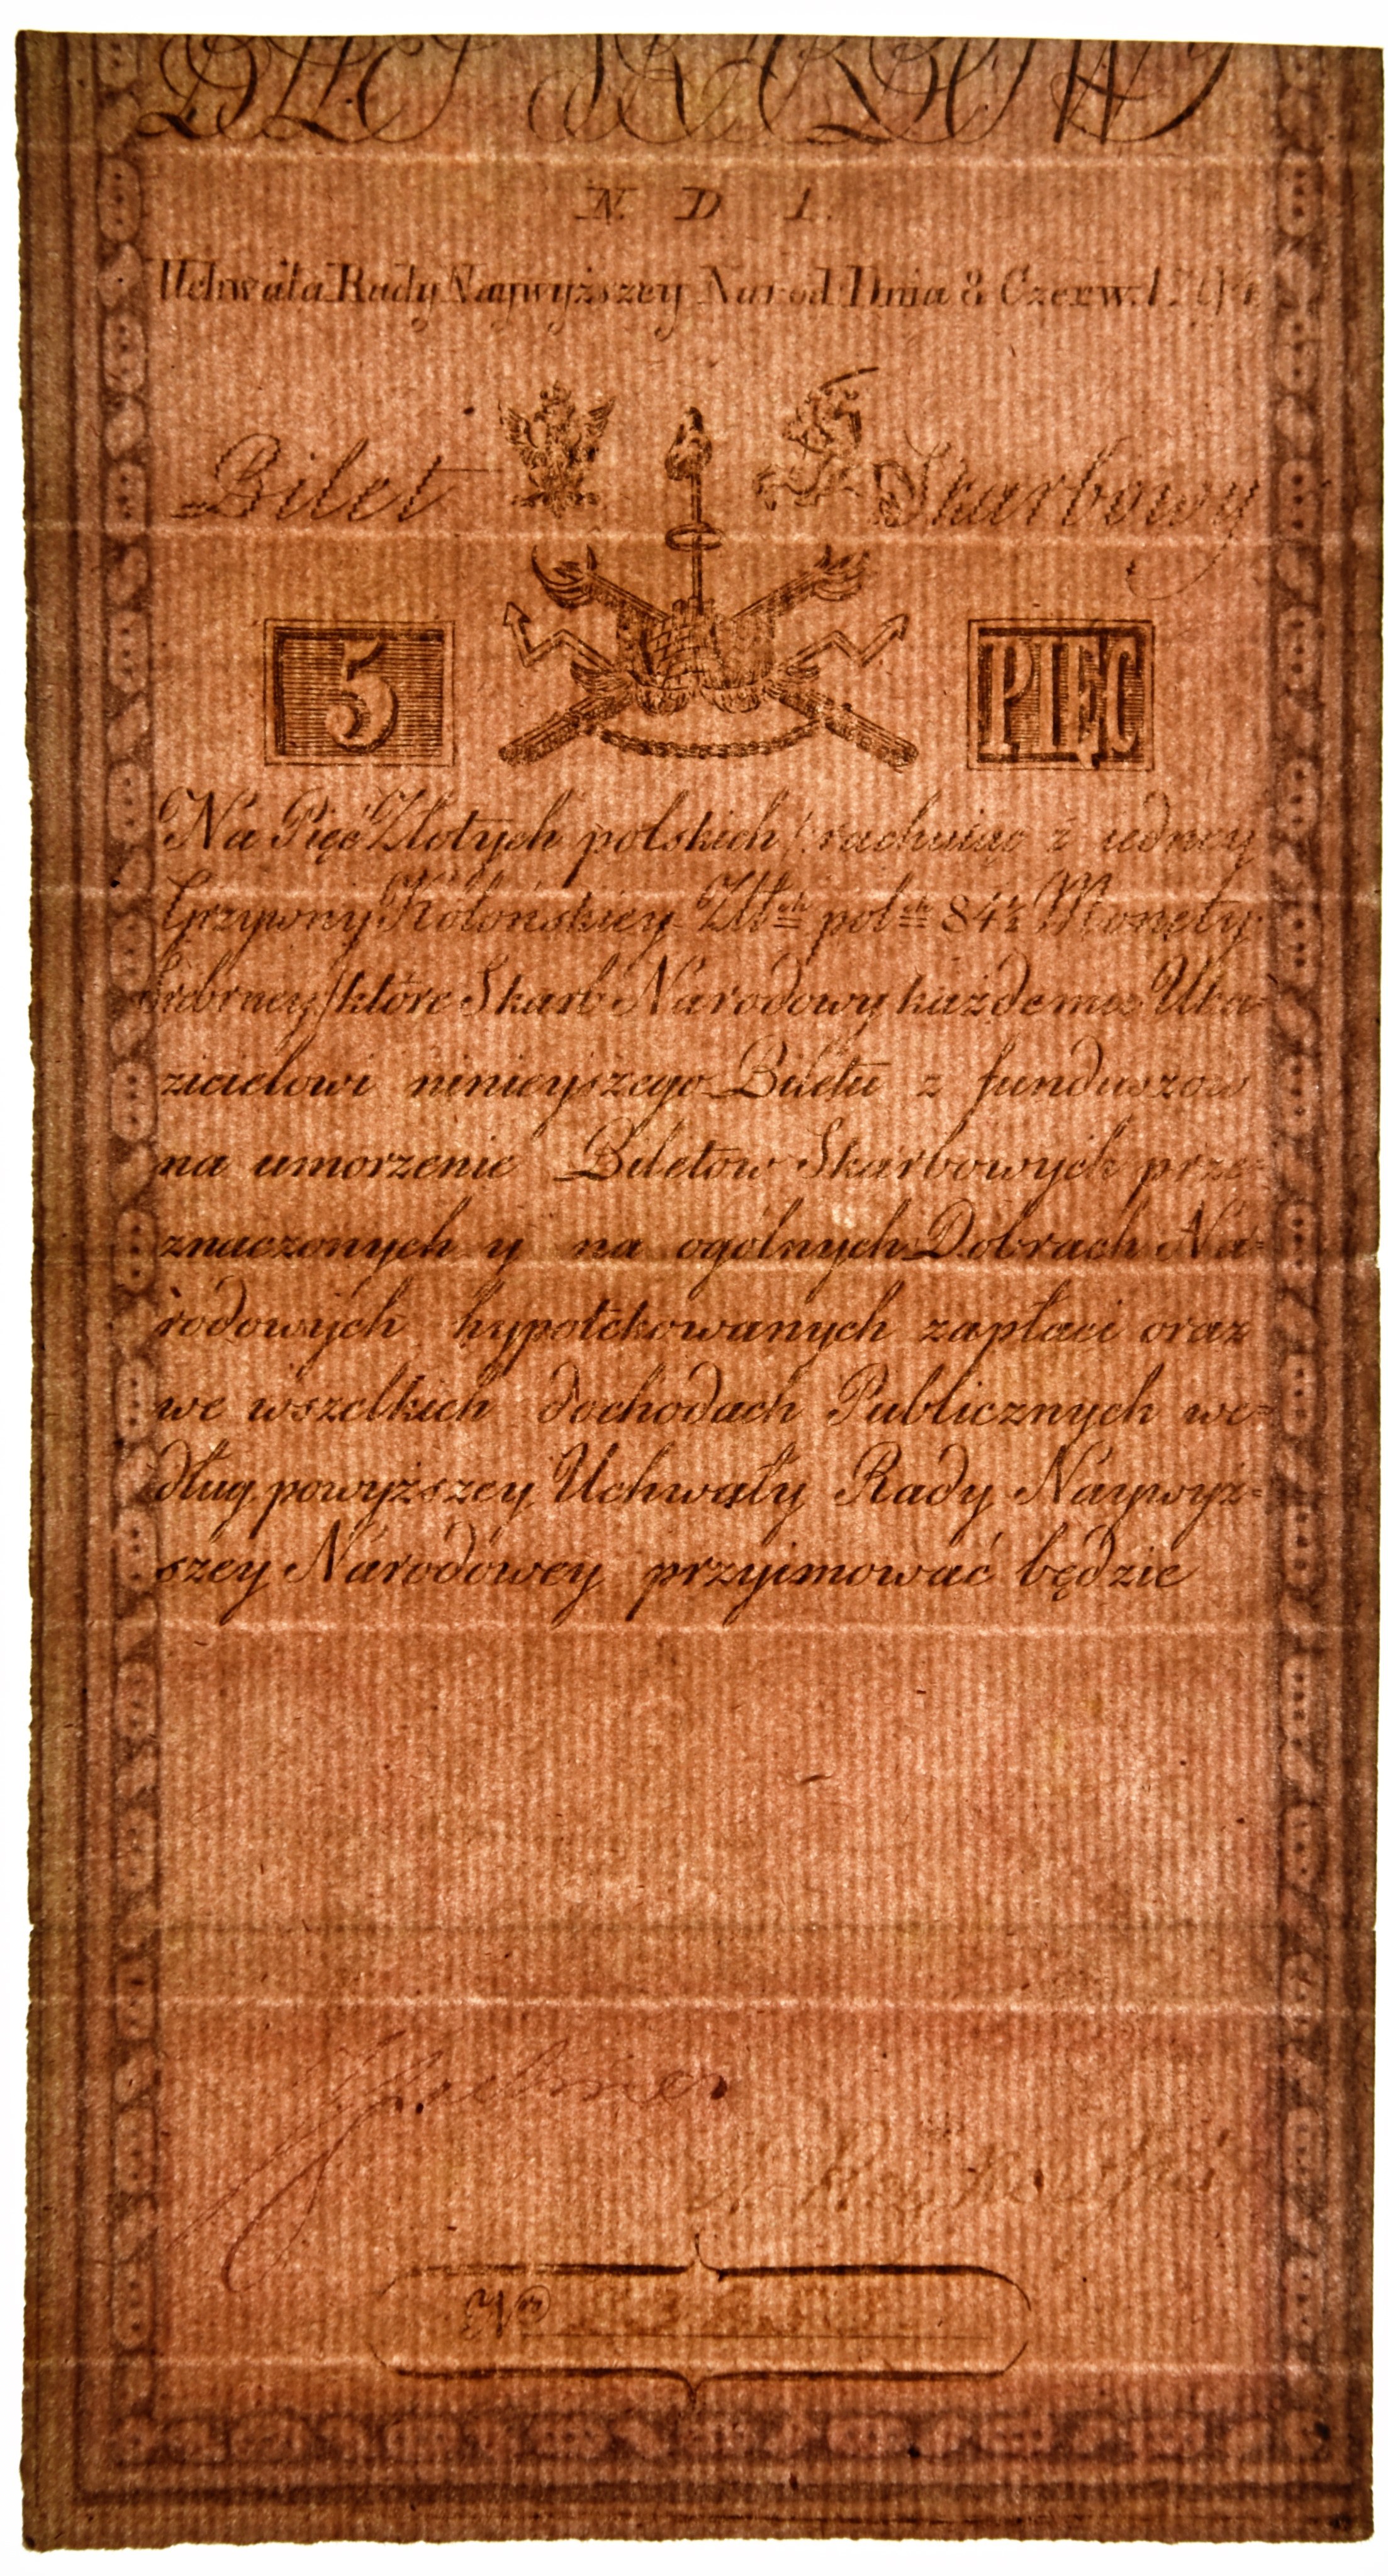 N. D 1.
Uchwała Rady Naywyższey Narod. Dnia 8 Czerw. 1794
Bilet Skarbowy
5 PIĘC
Na Pięć Złotych polskich /: rachuiąc z iedney
Grzywny Kolońskiey Złł.ch pol.ch 84½ Monety
Srebrney:/ które Skarb Narodowy każdemu Uka=
zicielowi ninieyszego Biletu z funduszow
na umorzenie Biletow Skarbowych prze=
znaczonych y na ogolnych Dobrach Na=
rodowych hypotekowanych zapłaci oraz
we wszelkich dochodach Publicznych we=
dług powyższey Uchwały Rady Naywyż=
szey Narodowey przyjmować będzie
Nro